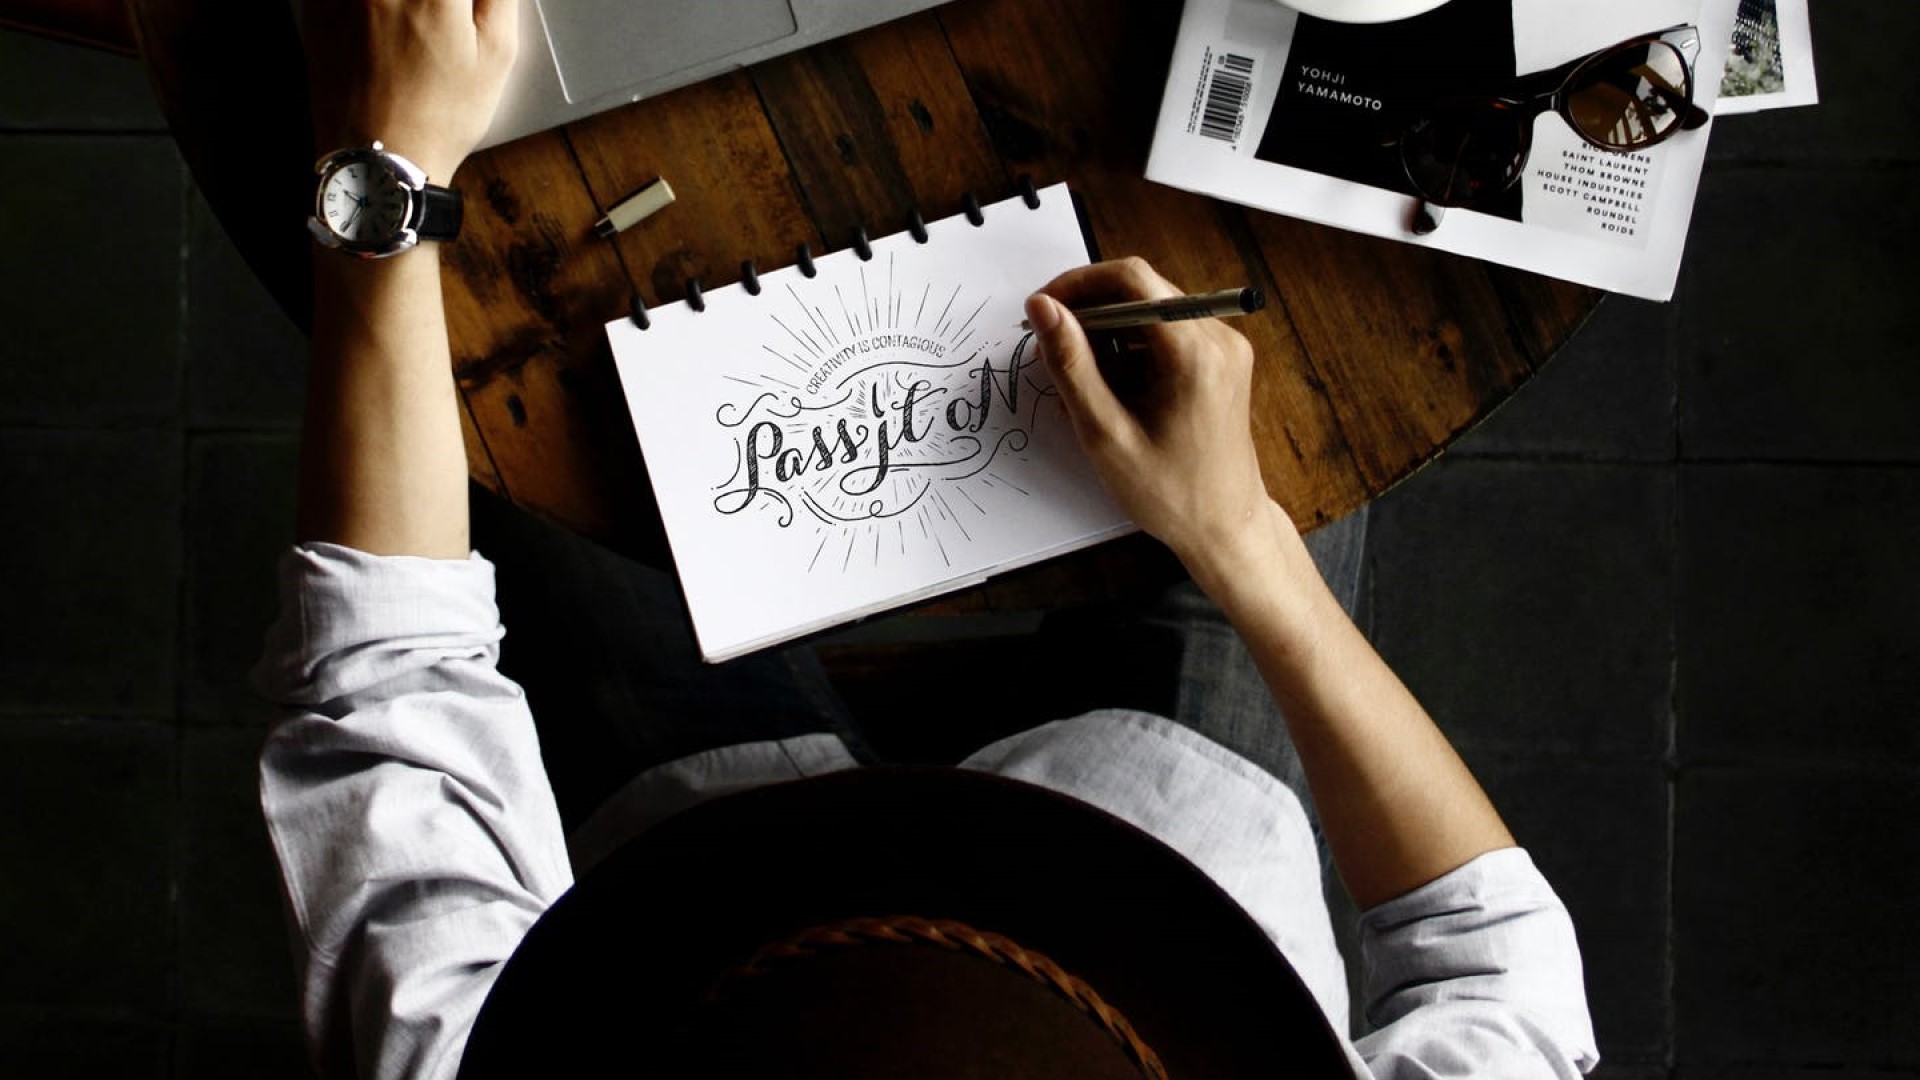 YOHJI
YAMAMOTO
SAINT LAURENT
THOM BROWNE
HOUSE INDUSTRIES
SCOTT CAMPBELL
ROUNDEL
ROIDS
CREATIVITY IS CONTAGIOUS
Pass it oN